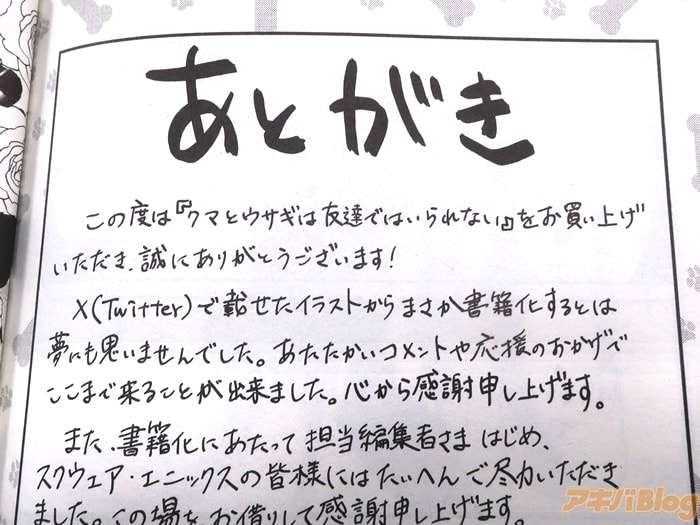 あとがき
この度は『クマとウサギは友達ではいられない』をお買い上げ
いただき、誠にありがとうございます！
X(Twitter)で載せたイラストからまさか書籍化するとは
夢にも思いませんでした。あたたかいコメントや応援のおかげで
ここまで来ることが出来ました。心から感謝申し上げます。
また、書籍化にあたって担当編集者さまはじめ、
スクウェア・エニックスの皆様にはたいへんご尽力いただき
ました。この場をお借りして感謝申し上げます。
アキバBlog